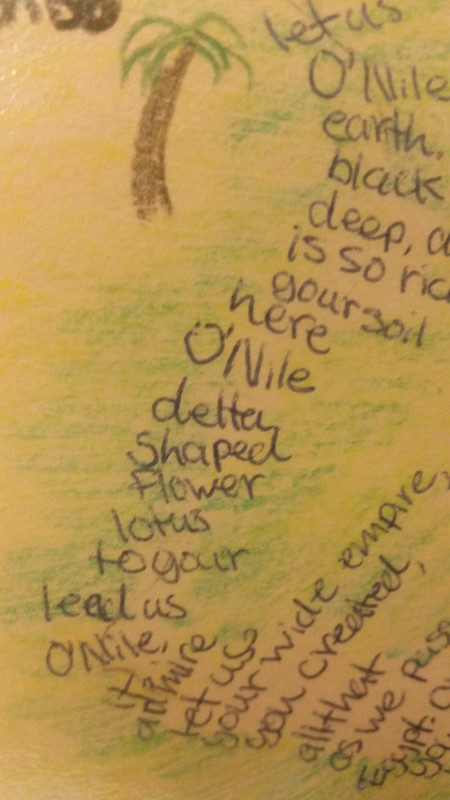 let us
O'Nile
earth.
black
deep,
is so
your soil
here
O'Nile
delta
shaped
flower
lotus
to your
lead us
O'Nile,
it
admire
let us
your wide empire,
you created,
allthat
as we